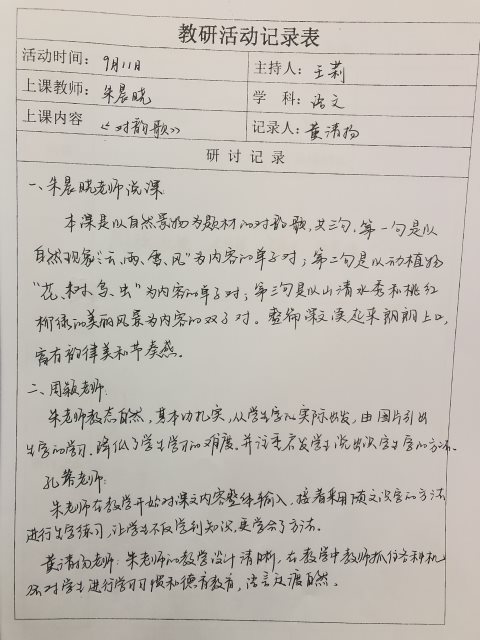 教研活动记录表
活动时间: 9月11日 主持人: 王莉
上课教师: 朱晨晓 学 科: 语文
上课内容 《对韵歌》 记录人: 黄清扬
研 讨 记 录
一、朱晨晓老师说课
本课是以自然景物为题材的对韵歌,共三句,第一句是以
自然现象“云、雨、雪、风”为内容的单字对;第二句是以动植物
“花、树、鸟、虫”为内容的单字对;第三句是以山清水秀和桃红
柳绿的美丽风景为内容的双字对。整篇课文读起来朗朗上口,
富有韵律美和节奏感。
二、周颖老师:
朱老师教态自然,基本功扎实,从学生学情实际出发,由图片引出
生字的学习,降低了学生学习的难度。并注重启发学生说出识字生字的方法。
孔菁老师:
朱老师在教学开始对课文内容整体输入,接着采用随文识字的方法
进行生字练习,让学生不仅学到知识,更学会了方法。
黄清扬老师:朱老师的教学设计清晰,在教学中教师抓住各种机
会对学生进行学习习惯和德育教育,语言过渡自然。